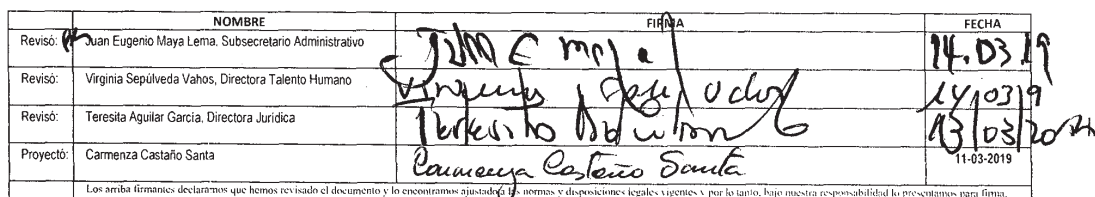 NOMBRE FIRMA FECHA
Revisó: Juan Eugenio Maya Lema. Subsecretario Administrativo 14.03.19
Revisó: Virginia Sepúlveda Vahos, Directora Talento Humano 14/03/9
Revisó: Teresita Aguilar García, Directora Jurídica 13/03/20
Proyectó: Carmenza Castaño Santa Carmenza Castaño Santa 11-03-2019
Los arriba firmantes declaramos que hemos revisado el documento y lo encontramos ajustado a las normas y disposiciones legales vigentes y por lo tanto, bajo nuestra responsabilidad lo presentamos para firma.